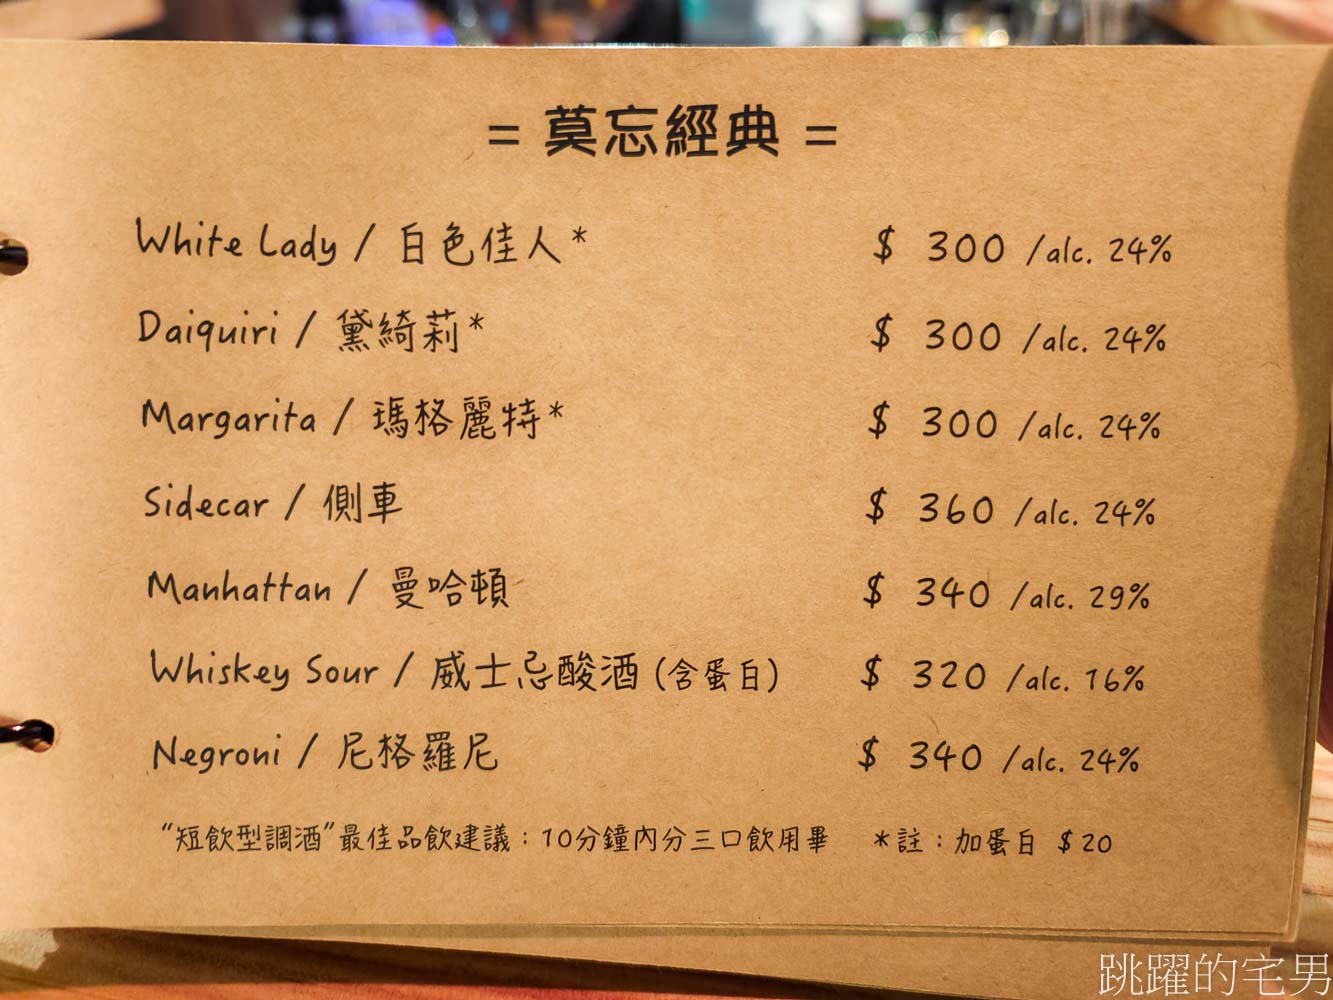 = 莫忘經典 =
White Lady / 白色佳人* $ 300 /alc. 24%
Daiquiri / 黛綺莉* $ 300 /alc. 24%
Margarita / 瑪格麗特* $ 300 /alc. 24%
Sidecar / 側車 $ 360 /alc. 24%
Manhattan / 曼哈頓 $ 340 /alc. 29%
Whiskey Sour / 威士忌酸酒 (含蛋白) $ 320 /alc. 16%
Negroni / 尼格羅尼 $ 340 /alc. 24%
“短飲型調酒”最佳品飲建議：10分鐘內分三口飲用畢 *註：加蛋白 $20
跳躍的宅男